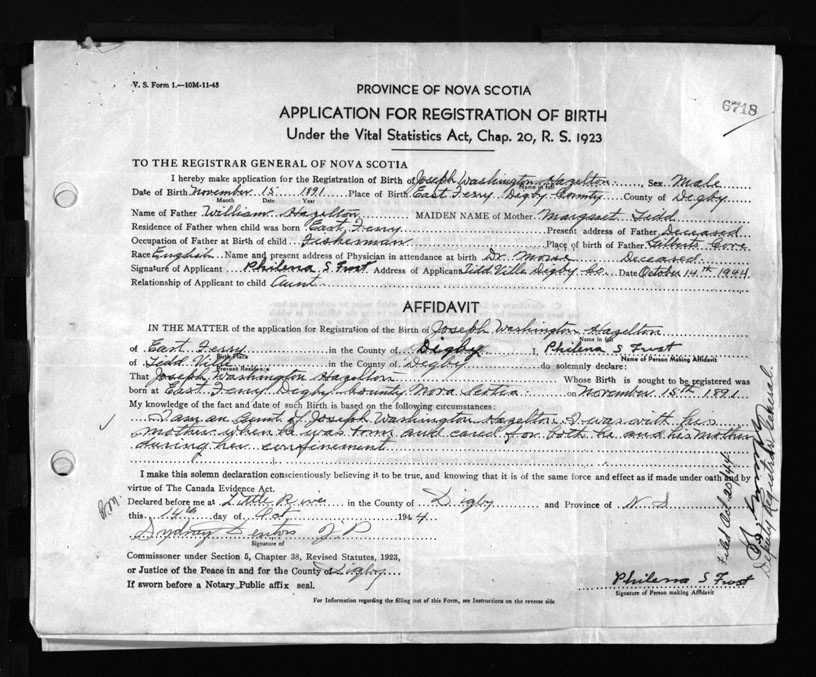 V. S. Form 1.—10M-11-43
6718
PROVINCE OF NOVA SCOTIA
APPLICATION FOR REGISTRATION OF BIRTH
Under the Vital Statistics Act, Chap. 20, R. S. 1923
TO THE REGISTRAR GENERAL OF NOVA SCOTIA
I hereby make application for the Registration of Birth of Joseph Washington Hazelton, Sex Male
Name in full
Date of Birth November 15 1891 Place of Birth East Ferry Digby County County of Digby
Month Date Year
Name of Father William Hazelton MAIDEN NAME of Mother Margaret Tidd
Residence of Father when child was born East Ferry Present address of Father Deceased
Occupation of Father at Birth of child Fisherman Place of birth of Father Gilberts Cove
Race English Name and present address of Physician in attendance at birth Dr. Morse Deceased
Signature of Applicant Philena S Frost Address of Applicant Tidd Ville Digby Co. Date October 14th 1944
Relationship of Applicant to child Aunt
AFFIDAVIT
IN THE MATTER of the application for Registration of the Birth of Joseph Washington Hazelton
Name in full
of East Ferry in the County of Digby I, Philena S Frost
Birth Place Name of Person Making Affidavit
of Tidd Ville in the County of Digby do solemnly declare:
Present Residence
That Joseph Washington Hazelton Whose Birth is sought to be registered was
born at East Ferry Digby County Nova Scotia on November 15th 1891
My knowledge of the fact and date of such Birth is based on the following circumstances:
I am an Aunt of Joseph Washington Hazelton. I was with his
mother when he was born and cared for both he and his mother
during her confinement
I make this solemn declaration conscientiously believing it to be true, and knowing that it is of the same force and effect as if made under oath and by
virtue of The Canada Evidence Act.
Declared before me at Little River in the County of Digby and Province of N. S
this 14th day of Oct 1944
Sydney Denton J P
Signature of
Commissioner under Section 5, Chapter 38, Revised Statutes, 1923,
or Justice of the Peace in and for the County of Digby
If sworn before a Notary Public affix seal.
Philena S Frost
Signature of Person making Affidavit
For Information regarding the filling out of this Form, see Instructions on the reverse side
Filed Oct 20/44
Deputy Registrar General